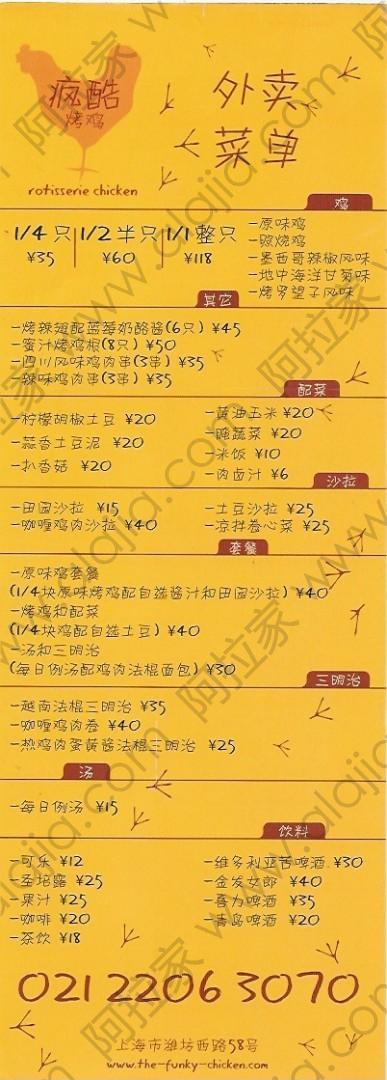 疯酷
烤鸡
rotisserie chicken
外卖
菜单
鸡
1/4 只 1/2 半只 1/1 整只
¥35 ¥60 ¥118
-原味鸡
-照烧鸡
-墨西哥辣椒风味
-地中海洋甘菊味
-烤罗望子风味
其它
-烤辣翅配蓝莓奶酪酱(6只) ¥45
-蜜汁烤鸡根(8只) ¥50
-四川风味鸡肉串(3串) ¥35
-辣味鸡肉串(3串) ¥35
配菜
-柠檬胡椒土豆 ¥20
-蒜香土豆泥 ¥20
-扒香菇 ¥20
-黄油玉米 ¥20
-腌蔬菜 ¥20
-米饭 ¥10
-肉卤汁 ¥6
沙拉
-田园沙拉 ¥15
-咖喱鸡肉沙拉 ¥40
-土豆沙拉 ¥25
-凉拌卷心菜 ¥25
套餐
-原味鸡套餐
(1/4块原味烤鸡配自选酱汁和田园沙拉) ¥40
-烤鸡和配菜
(1/4块鸡配自选土豆) ¥40
-汤和三明治
(每日例汤配鸡肉法棍面包) ¥30
三明治
-越南法棍三明治 ¥35
-咖喱鸡肉卷 ¥40
-热鸡肉蛋黄酱法棍三明治 ¥25
汤
-每日例汤 ¥15
饮料
-可乐 ¥12
-圣培露 ¥25
-果汁 ¥25
-咖啡 ¥20
-茶饮 ¥18
-维多利亚苦啤酒 ¥30
-金发女郎 ¥40
-喜力啤酒 ¥35
-青岛啤酒 ¥20
021 2206 3070
上海市潍坊西路58号
www.the-funky-chicken.com
阿拉家 www.alajia.com